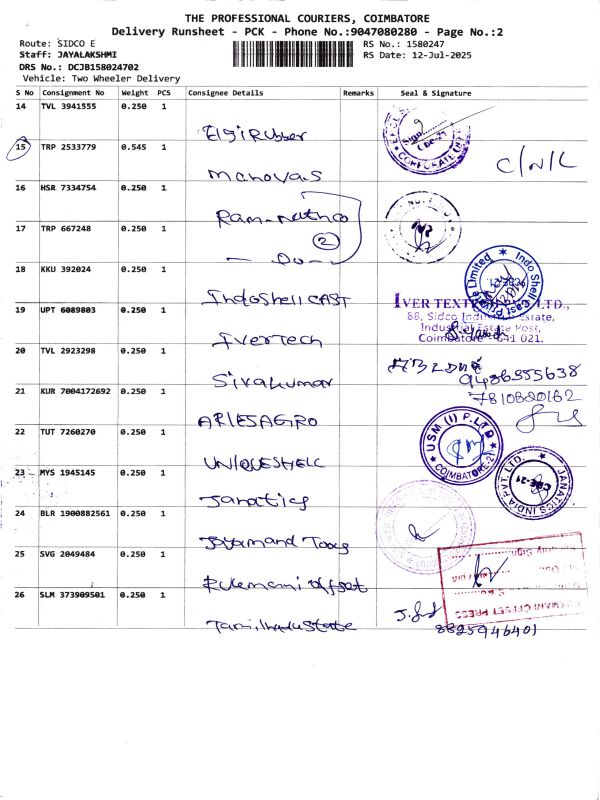 THE PROFESSIONAL COURIERS, COIMBATORE
Delivery Runsheet - PCK - Phone No.:9047080280 - Page No.:2
Route: SIDCO E
RS No.: 1580247
Staff: JAYALAKSHMI
RS Date: 12-Jul-2025
DRS No.: DCJB158024702
Vehicle: Two Wheeler Delivery
S No Consignment No Weight PCS Consignee Details Remarks Seal & Signature
14 TVL 3941555 0.250 1
Elgi Rubber
CBE-21
CORPORATE
15 TRP 2533779 0.545 1
Manovas
C/N/L
16 HSR 7334754 0.250 1
Ram-Nathco
17 TRP 667248 0.250 1
2
- Do -
18 KKU 392024 0.250 1
IndoShell CAST
Indo Shell Cast Private Limited
19 UPT 6089803 0.250 1
IverTech
IVER TEXTECH PVT. LTD.,
88, Sidco Industrial Estate,
Industrial Estate Post,
Coimbatore - 641 021.
20 TVL 2923298 0.250 1
Sivakumar
9486355638
21 KUR 7004172692 0.250 1
7810820162
ARIESAGRO
22 TUT 7260270 0.250 1
UNIQUESHELL
USM (I) P.LTD
COIMBATORE-21
23 MYS 1945145 0.250 1
Janatics
JANATICS INDIA PVT. LTD.
CBE-21
24 BLR 1900882561 0.250 1
25 SVG 2049484 0.250 1
Rukmani offset
OFFSET PRESS
26 SLM 373909501 0.250 1
Tamilnadu State
8825946401